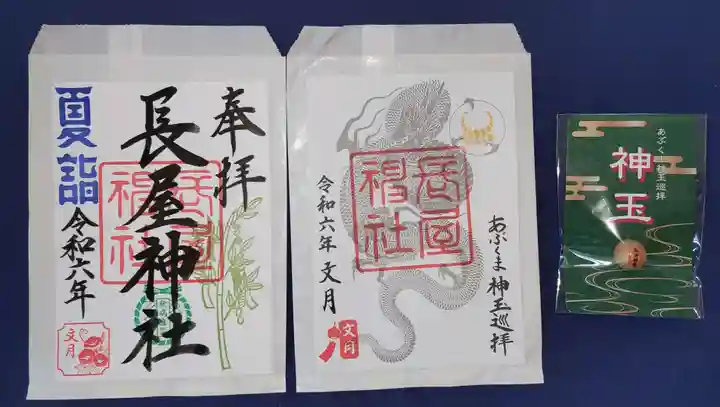 奉拝
長屋神社
夏詣
令和六年
文月
長屋神社
令和六年 文月
あぶくま神玉巡拝
長屋神社
文月
あぶくま神玉巡拝
神玉